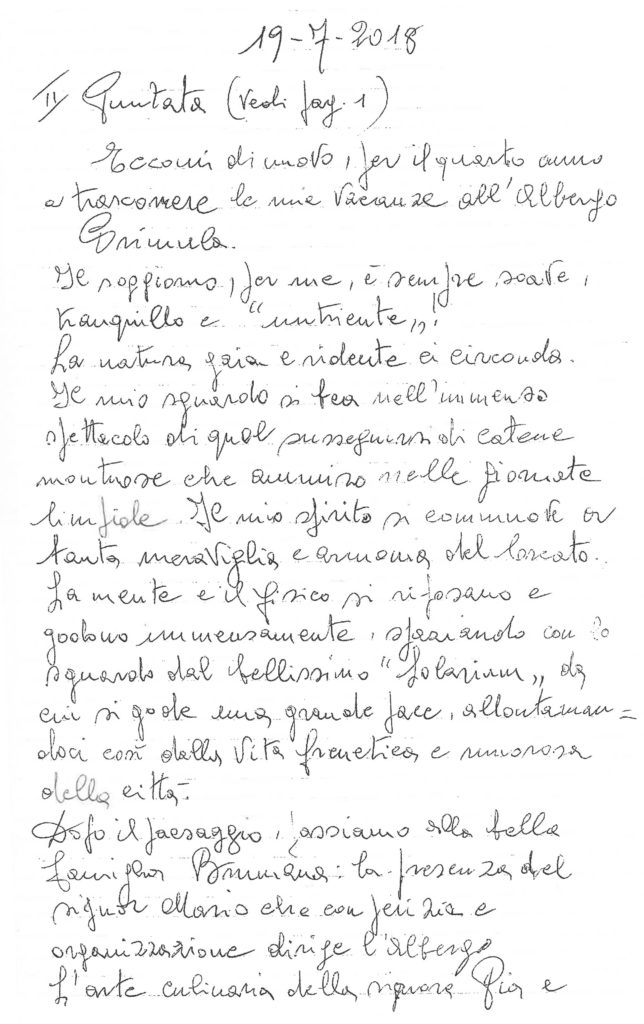 19-7-2018
II Puntata (vedi pag. 1)
Eccomi di nuovo, per il quarto anno
a trascorrere le mie vacanze all'Albergo
Primula.
Il soggiorno, per me, è sempre soave,
tranquillo e "nutriente„!
La natura gaia e ridente ci circonda.
Il mio sguardo si bea nell'immenso
spettacolo di quel susseguirsi di catene
montuose che ammiro nelle giornate
limpide. Il mio spirito si commuove a
tanta meraviglia e armonia del Creato.
La mente e il fisico si riposano e
godono immensamente, spaziando con lo
sguardo dal bellissimo "Solarium„ da
cui si gode una grande pace, allontanan=
doci così dalla vita frenetica e rumorosa
della città.
Dopo il paesaggio, passiamo alla bella
famiglia : la presenza del
signor Mario che con perizia e
organizzazione dirige l'Albergo
L'arte culinaria della signora Pia e